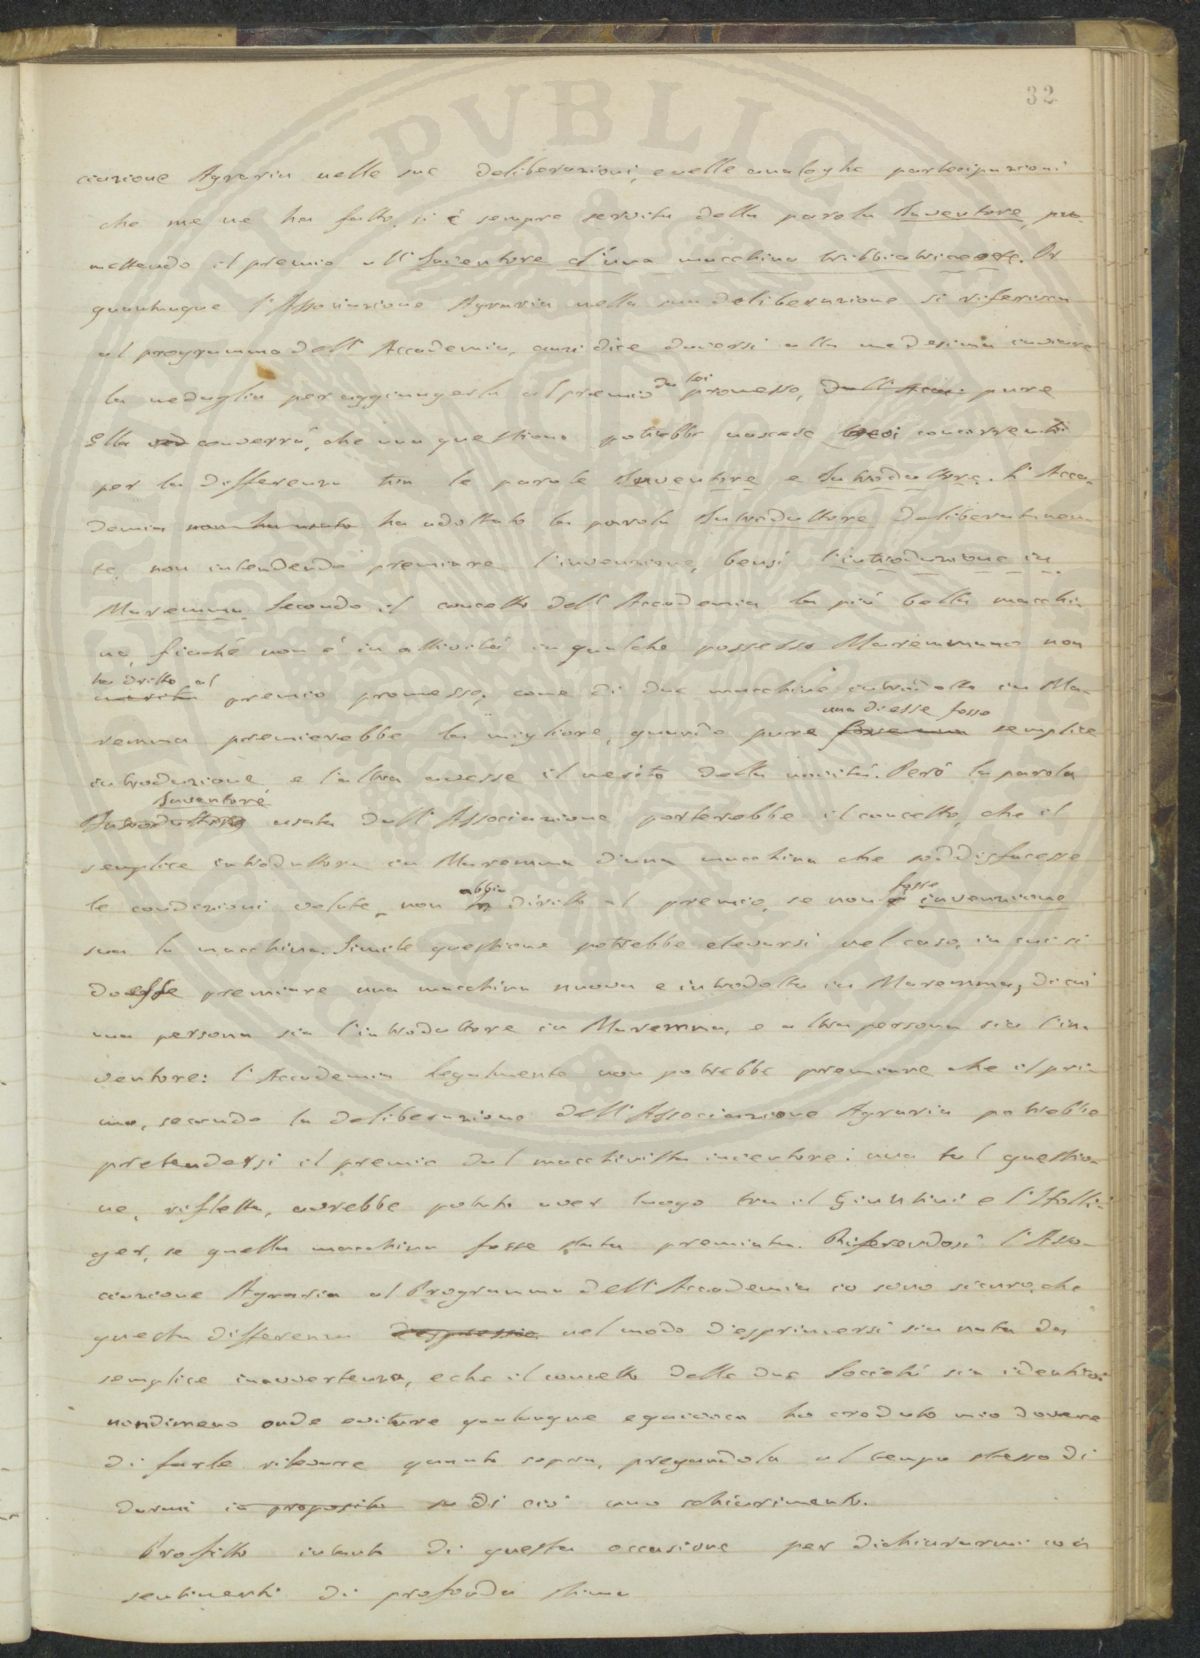 32
ciazione Agraria nelle sue deliberazioni, e nelle analoghe partecipazioni
che me ne ha fatto, si è sempre servita della parola Inventore, pro-
mettendo il premio all'Inventore d'una macchina tribbiatrice. Or
quantunque l'Associazione Agraria nella sua deliberazione si riferisca
al programma dell'Accademia, anzi dice doversi alla medesima inviare
la medaglia per aggiungerla al premio da lei promesso, dall'Acca. pure
Ella converrà, che una questione potrebbe nascere concorrenti
per la differenza tra le parole Inventore e Introduttore. L'Acca-
demia non ha usato ha adottato la parola Introduttore deliberatamen-
te, non intendendo premiare l'invenzione, bensì l'introduzione in
Maremma. Secondo il concetto dell'Accademia la più bella macchi-
na, finché non è in attività in qualche possesso Maremmano non
ha dritto al
merita premio promesso, come di due macchine introdotte in Ma-
remma premierebbe la migliore, quando pure una di esse fosse semplice
introduzione e l'altra avesse il merito della novità. Però la parola
Inventore
Introduttore usata dall'Associazione porterebbe il concetto, che il
semplice introduttore in Maremma d'una macchina che soddisfacesse
le condizioni volute, non abbia diritto al premio, se non fosse invenzione
sua la macchina. Simile questione potrebbe elevarsi nel caso, in cui si
dovesse premiare una macchina nuova e introdotta in Maremma, di cui
una persona sia l'introduttore in Maremma, e altra persona sia l'in-
ventore: l'Accademia legalmente non potrebbe premiare che il pri-
mo, secondo la deliberazione dell'Associazione Agraria potrebbe
pretendersi il premio dal macchinista inventore: una tal questio-
ne, rifletta, avrebbe potuto aver luogo tra il Giuntini e l'Holli-
ger, se quella macchina fosse stata premiata. Riferendosi l'Asso-
ciazione Agraria al Programma dell'Accademia io sono sicuro, che
questa differenza nel modo d'esprimersi sia nata da
semplice inavvertenza, e che il concetto delle due Società sia identico
nondimeno onde evitare qualunque equivoco ho creduto mio dovere
di farle rilevare quanto sopra, pregandola al tempo stesso di
darmi in proposito su di ciò uno schiarimento.
Profitto intanto di questa occasione per dichiararmi con
sentimenti di profonda stima